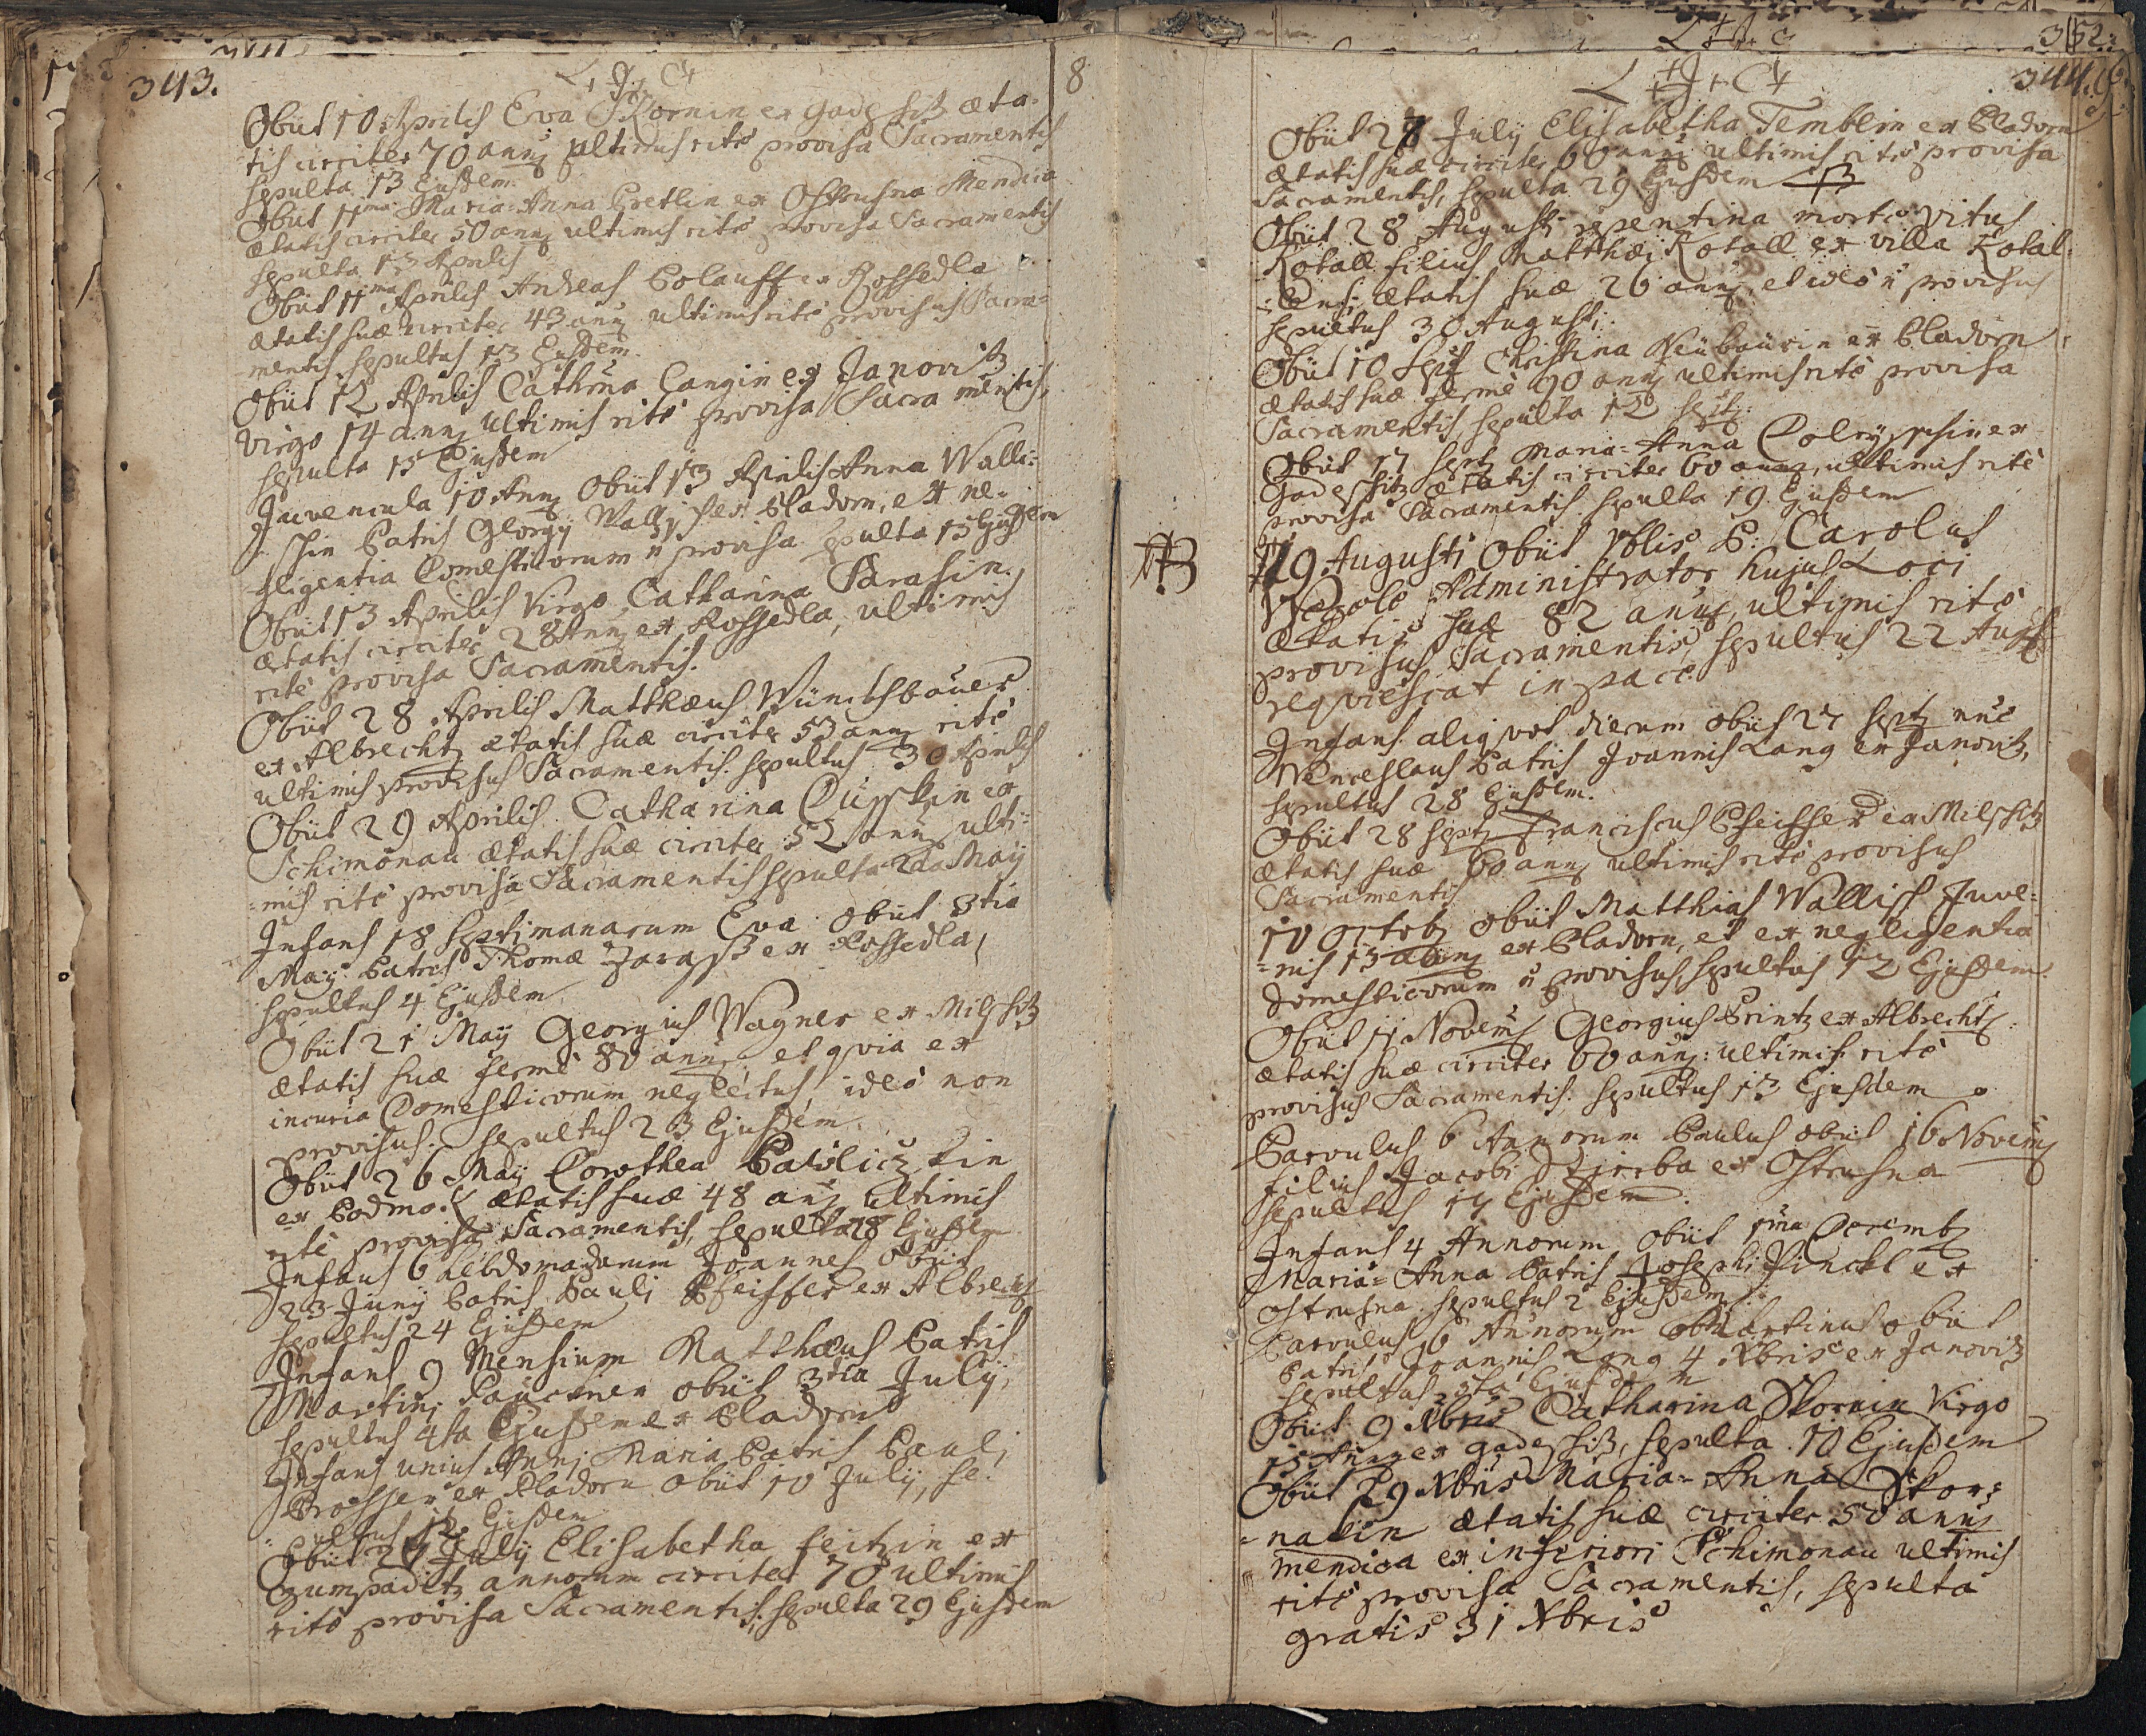 343.
L + J + C +
8
Obiit 10 Aprilis Eva Skornin ex Gadeschitz æta-
tis circiter 70 annoꝝ ultimis rite provisa Sacramentis
sepulta 13 Ejusdem.
Obiit 11ma Maria-Anna Gretlin ex Ostrusna Mendica
ætatis circiter 50 annoꝝ ultimis rite provisa Sacramentis
sepulta 13 Aprilis
Obiit 11ma Aprilis Andreas Polauff ex Rossedla
ætatis suæ circiter 43 annoꝝ ultimis rite provisus Sacra-
mentis sepultus 13 Ejusdem.
Obiit 12 Aprilis Cathrina Langin ex Janovitz
Virgo 14 annoꝝ ultimis rite provisa Sacramentis,
sepulta 15 Ejusdem
Juvencula 10 Annoꝝ Obiit 13 Aprilis Anna Walli-
schin Patris Georgij Wallisch ex Pladorn, ex ne-
gligentia Domesticorum ñ provisa sepulta 15 Ejusdem
Obiit 13 Aprilis Virgo Catharina Sarasin
ætatis circiter 28 Annoꝝ ex Rossedla, ultimis
rite provisa Sacramentis.
Obiit 28 Aprilis Matthæus Wüntschbauer
ex Albrechtz ætatis suæ circiter 53 annoꝝ rite
ultimis provisus Sacramentis. sepultus 30 Aprilis
Obiit 29 Aprilis Catharina ex
Schimonau ætatis suæ circiter 52 annoꝝ ulti-
mis rite provisa Sacramentis sepulta 2da May
Infans 18 septimanarum Eva obiit 3tia
May Patris Thomæ Zarass ex Rossedla,
sepultus 4 Ejusdem
Obiit 21 May Georgius Wagner ex Milschitz
ætatis suæ ferme 80 annoꝝ et qvia ex
incuria Domesticorum neglectus, ideo non
provisus. sepultus 23 Ejusdem.
Obiit 26 May Dorothea Pawliczkin
ex Podmo. ætatis suæ 48 annoꝝ ultimis
rite provisa Sacramentis, sepulta 28 Ejusdem
Infans 6 hebdomadarum Joannes obiit
23 Juny Patris Pauli Pfeiffer ex Albrechtz
sepultus 24 Ejusdem
Infans 9 Mensium Matthæus Patris
Martini obiit 3tia July,
sepultus 4ta Ejusdem ex Pladorn
Infans unius Anni Maria Patris Pauli
Prosser ex Pladorn obiit 10 July, se-
pultus 12 Ejusdem
Obiit 27 July Elisabetha Feitzin ex
Czumpaditz annorum circiter 70 ultimis
rite provisa Sacramentis, sepulta 29 Ejusdem
L + J + C
352.
L + J + C +
344.
Obiit 28 July Elisabetha Temblin ex Pladorn
ætatis suæ circiter 60 annoꝝ ultimis rite provisa
Sacramentis, sepulta 29 Ejusdem
Obiit 28 Augusti repentina morte Vitus
Kotall filius Matthæi Kotall ex villa Kotal-
lensi, ætatis suæ 26 annoꝝ, et ideo ñ provisus
sepultus 30 Augusti.
Obiit 10 Septz Christina Neübaürin ex Pladorn
ætatis suæ ferme 90 annoꝝ ultimis rite provisa
Sacramentis, sepulta 12 Septz.
Obiit 17 Septz Maria-Anna ex
Gadeschitz ætatis circiter 60 annoꝝ, ultimis rite
provisa Sacramentis. sepulta 19 Ejusdem
NB
19 Augusti Obiit Nblis P: Carolus
Administrator hujus Loci
Ætatis suæ 82 annoꝝ, ultimis rite
provisus Sacramentis, sepultus 22 Aug
reqviescat in pace.
Infans aliqvot dierum obiit 27 Septz
Wenceslaus Patris Joannis Lang ex Janovitz,
sepultus 28 Ejusdem.
Obiit 28 Septz Franciscus Pfeiffer ex Milschitz
ætatis suæ 60 annoꝝ ultimis rite provisus
Sacramentis
10 Octobz obiit Matthias Wallisch Juve-
nis 13 annoꝝ ex Pladorn, et ex negligentia
Domesticorum ñ provisus, sepultus 12 Ejusdem.
Obiit 11 Novembꝝ Georgius Printz ex Albrechtz
ætatis suæ circiter 60 annoꝝ: ultimis rite
provisus Sacramentis: sepultus 13 Ejusdem
Parvulus 6 Annorum Paulus obiit 16 Novembꝝ
filius Jacobi ex Ostrusna
sepultus 17 Ejusdem.
Infans 4 Annorum obiit 1ma Decembz
Maria-Anna Patris Josephi ex
Ostrusna. sepultus 2 Ejusdem.
Parvulus 6 Annorum Martinus obiit
Patris Joannis Lang 4 Xbris ex Janovitz
sepultus Ejusdem
Obiit 9 Xbris Catharina Skornin Virgo
15 Annoꝝ ex Gadeschitz, sepulta 10 Ejusdem
Obiit 29 Xbris Maria-Anna Skor-
nalin ætatis suæ circiter 50 annoꝝ
mendica ex inferiori Schimonau ultimis
rite provisa Sacramentis, sepulta
gratis 31 Xbris